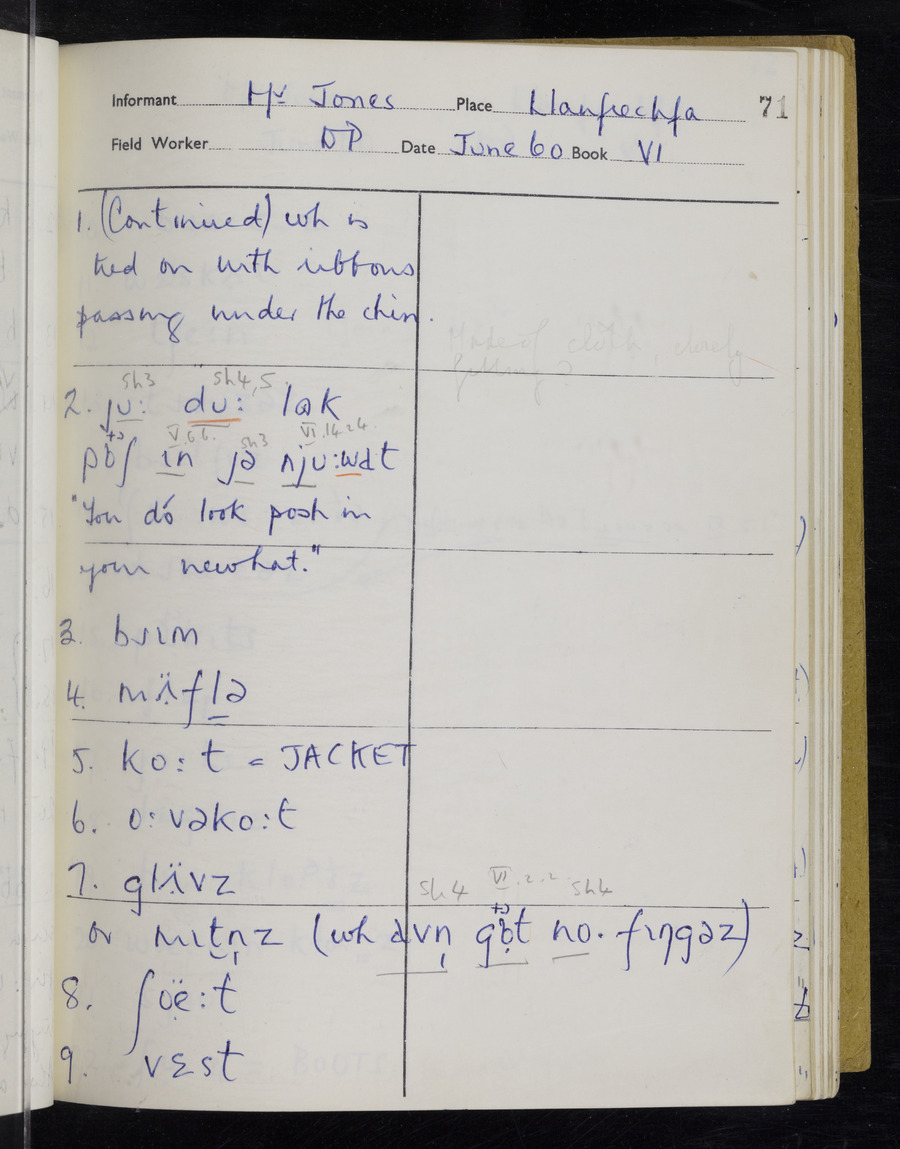 Informant Mr Jones Place Llanfrechfa 71
Field Worker DP Date June 60 Book VI
1. (Continued) wh is
tied on with ribbons
passing under the chin.
Made of cloth, closely
fitting?
sh3 sh4,5
2. ju: du: lɷk
V.6.6. sh3 VI.14.24
pɒʃ ɪn jə nju:wat
"You dó look posh in
your new hat."
3. bɹɪm
4. mʌ̈flə
5. ko:t = JACKET
6. o:vəko:t
7. glʌ̈vz
sh4 VI.2.2 sh4
or mɪtn̩z (wh avn̩ gɒt no. fɪŋgəz)
8. ʃœ̈:t
9. vɛst
BOOTS